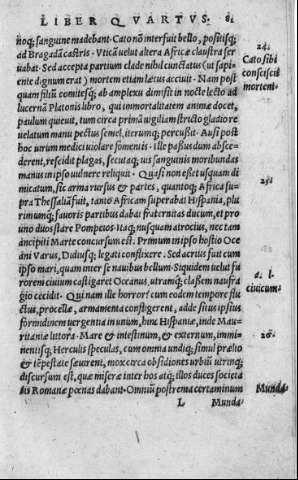 LIBER QVARTVS. 81
noq; sanguine madebant. Cato nō interfuit bello, positisq;
ad Bragadā castris. Vticā uelut altera Africæ claustra ser
uabat. Sed accepta partium clade nihil cunctatus (ut sapi
ente dignum erat) mortem etiam lætus acciuit. Nam post
quam filiū comitesq; ab amplexu dimisit in nocte lecto ad
lucernā Platonis libro, qui immortalitatem animæ docet,
paulum quieuit, tum circa primā uigiliam stricto gladio re
uelatum manu pectus semel, iterumq; percußit. Ausi post
hoc uirum medici uiolare fomentis. Ille passus dum absce-
derent, rescidit plagas, secutaq; uis sanguinis moribundas
manus in ipso uulnere reliquit. Quasi non esset usquam di
micatum, sic arma rursus & partes, quantoq; Africa su-
pra Thessaliā fuit, tanto Africam superabat Hispania, plu
rimumq; fauoris partibus dabat fraternitas ducum, et pro
uno duo stare Pompeios. Itaq; nusquam atrocius, nec tam
ancipiti Marte concursum est. Primum in ipso hostio Oce
ani Varus, Didiusq; legati conflixere. Sed acrius fuit cum
ipso mari, quam inter se nauibus bellum. Siquidem uelut fu
rorem ciuium castigaret Oceanus, utramq; classem naufra
gio cecidit. Quinam ille horror? cum eodem tempore flu
ctus, procellæ, armamenta confligerent, adde situs ipsius
formidinem uergentia in unum, hinc Hispaniæ, inde Mau-
ritaniæ littora. Mare & intestinum, & externum, immi
nentisq; Herculis speculas, cum omnia undiq; simul prælio
& tēpestate sæuirent, mox circa obsidiones urbiū utrinq;
discursum est, quæ miseræ inter hos atq; illos duces societa
tis Romanæ pœnas dabant. Omniū postrema certaminum
L Munda
24.
Cato sibi
consciscit
mortem
25.
a. l.
ciuicum
26.
Munda